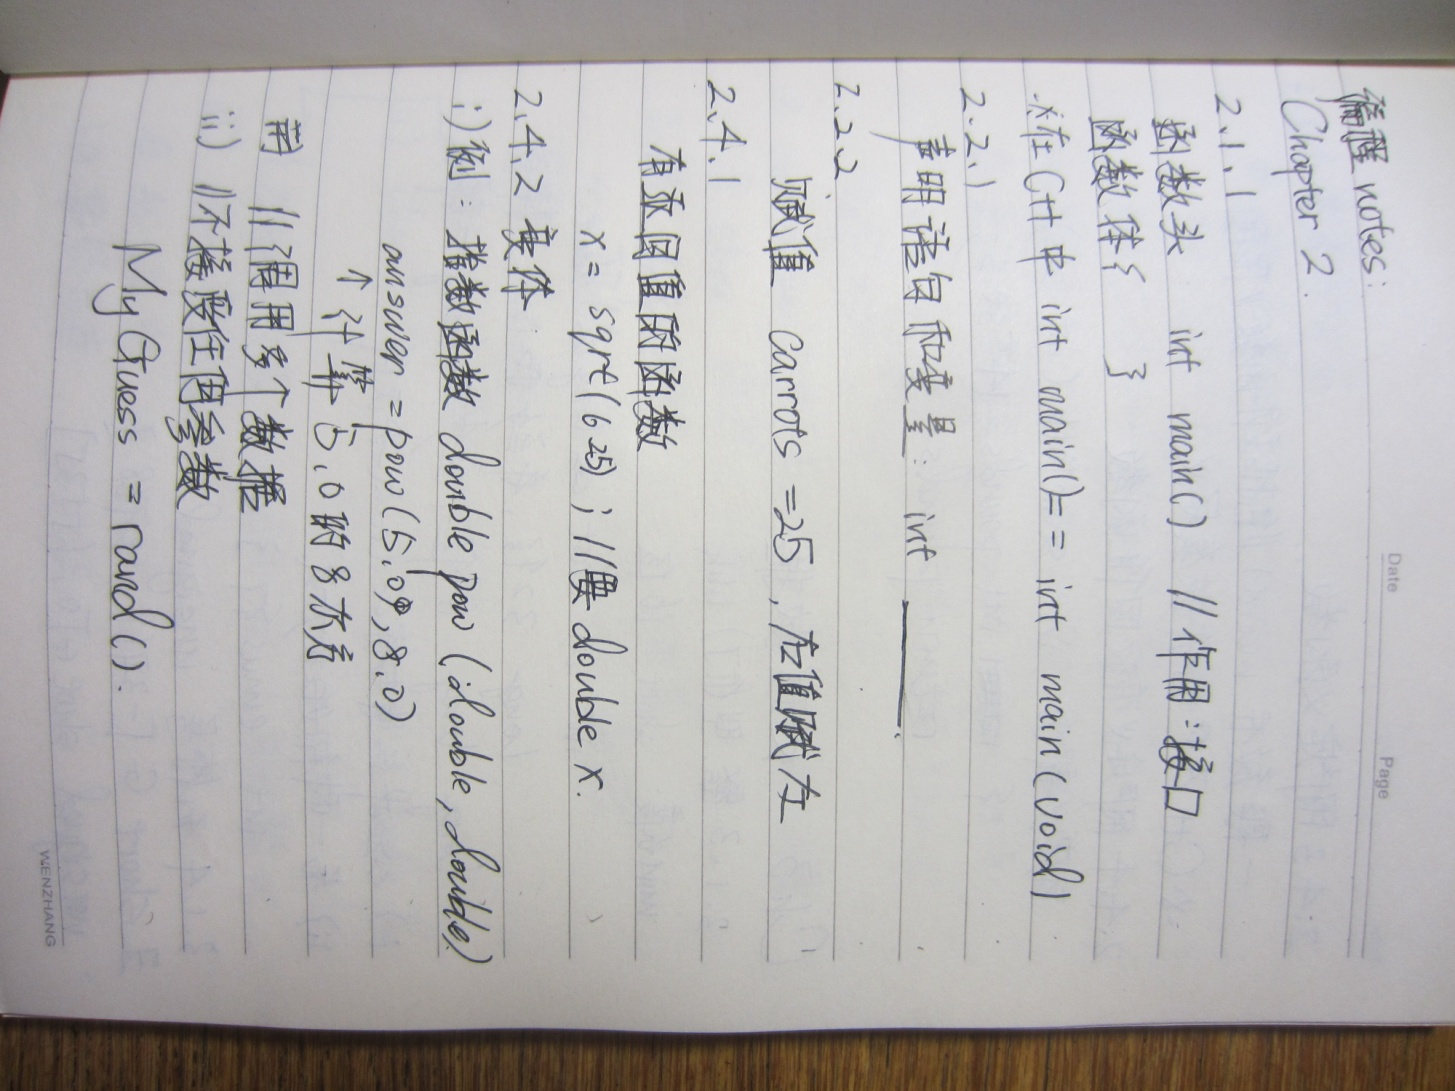 Date Page
编程 notes:
Chapter 2.
2.1.1
函数头 int main() // 作用:接口
函数体{ }
※在C++中 int main()== int main(void)
2.2.1
声明语句和变量: int ____.
2.2.2
赋值 carrots =25, 右值赋左
2.4.1
有返回值的函数
x= sqrt(625); //要 double x.
2.4.2 变体
i) 例: 指数函数 double pow (double, double)
answer = pow(5.0, 8.0)
↑ 计算 5.0的8次方
带 //调用多个数据
ii) //不接受任何参数
My Guess = rand().
WENZHANG